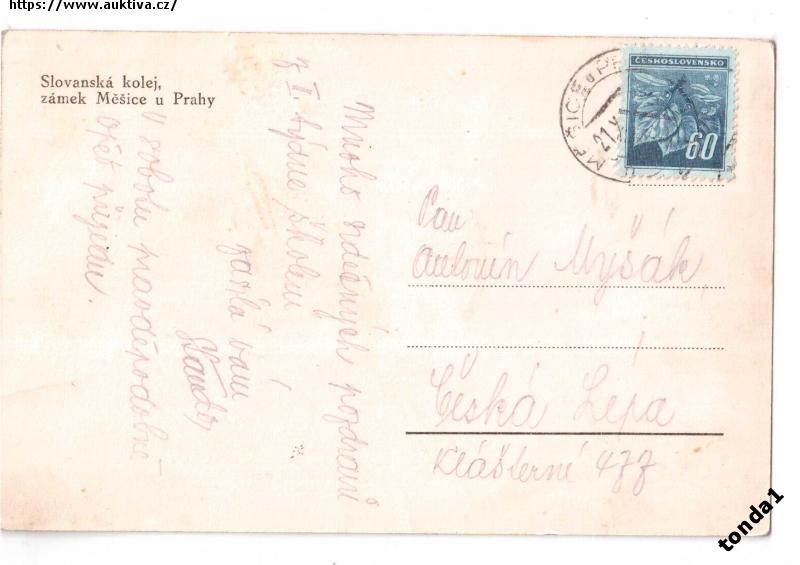 https://www.auktiva.cz/
Slovanská kolej,
zámek Měšice u Prahy
Mnoho srdečných pozdravů
z I. týdne školení
zasílá vám
V sobotu pravděpodobně
opět přijedu.
ČESKOSLOVENSKO
60
MĚŠICE u PR
21.X
Pan
Antonín Myšák
Česká Lípa
Klášterní 477
tonda1